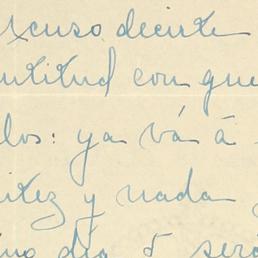 excuso decirte
ntitud con que
los: ya vá á
itez y nada
día ó será